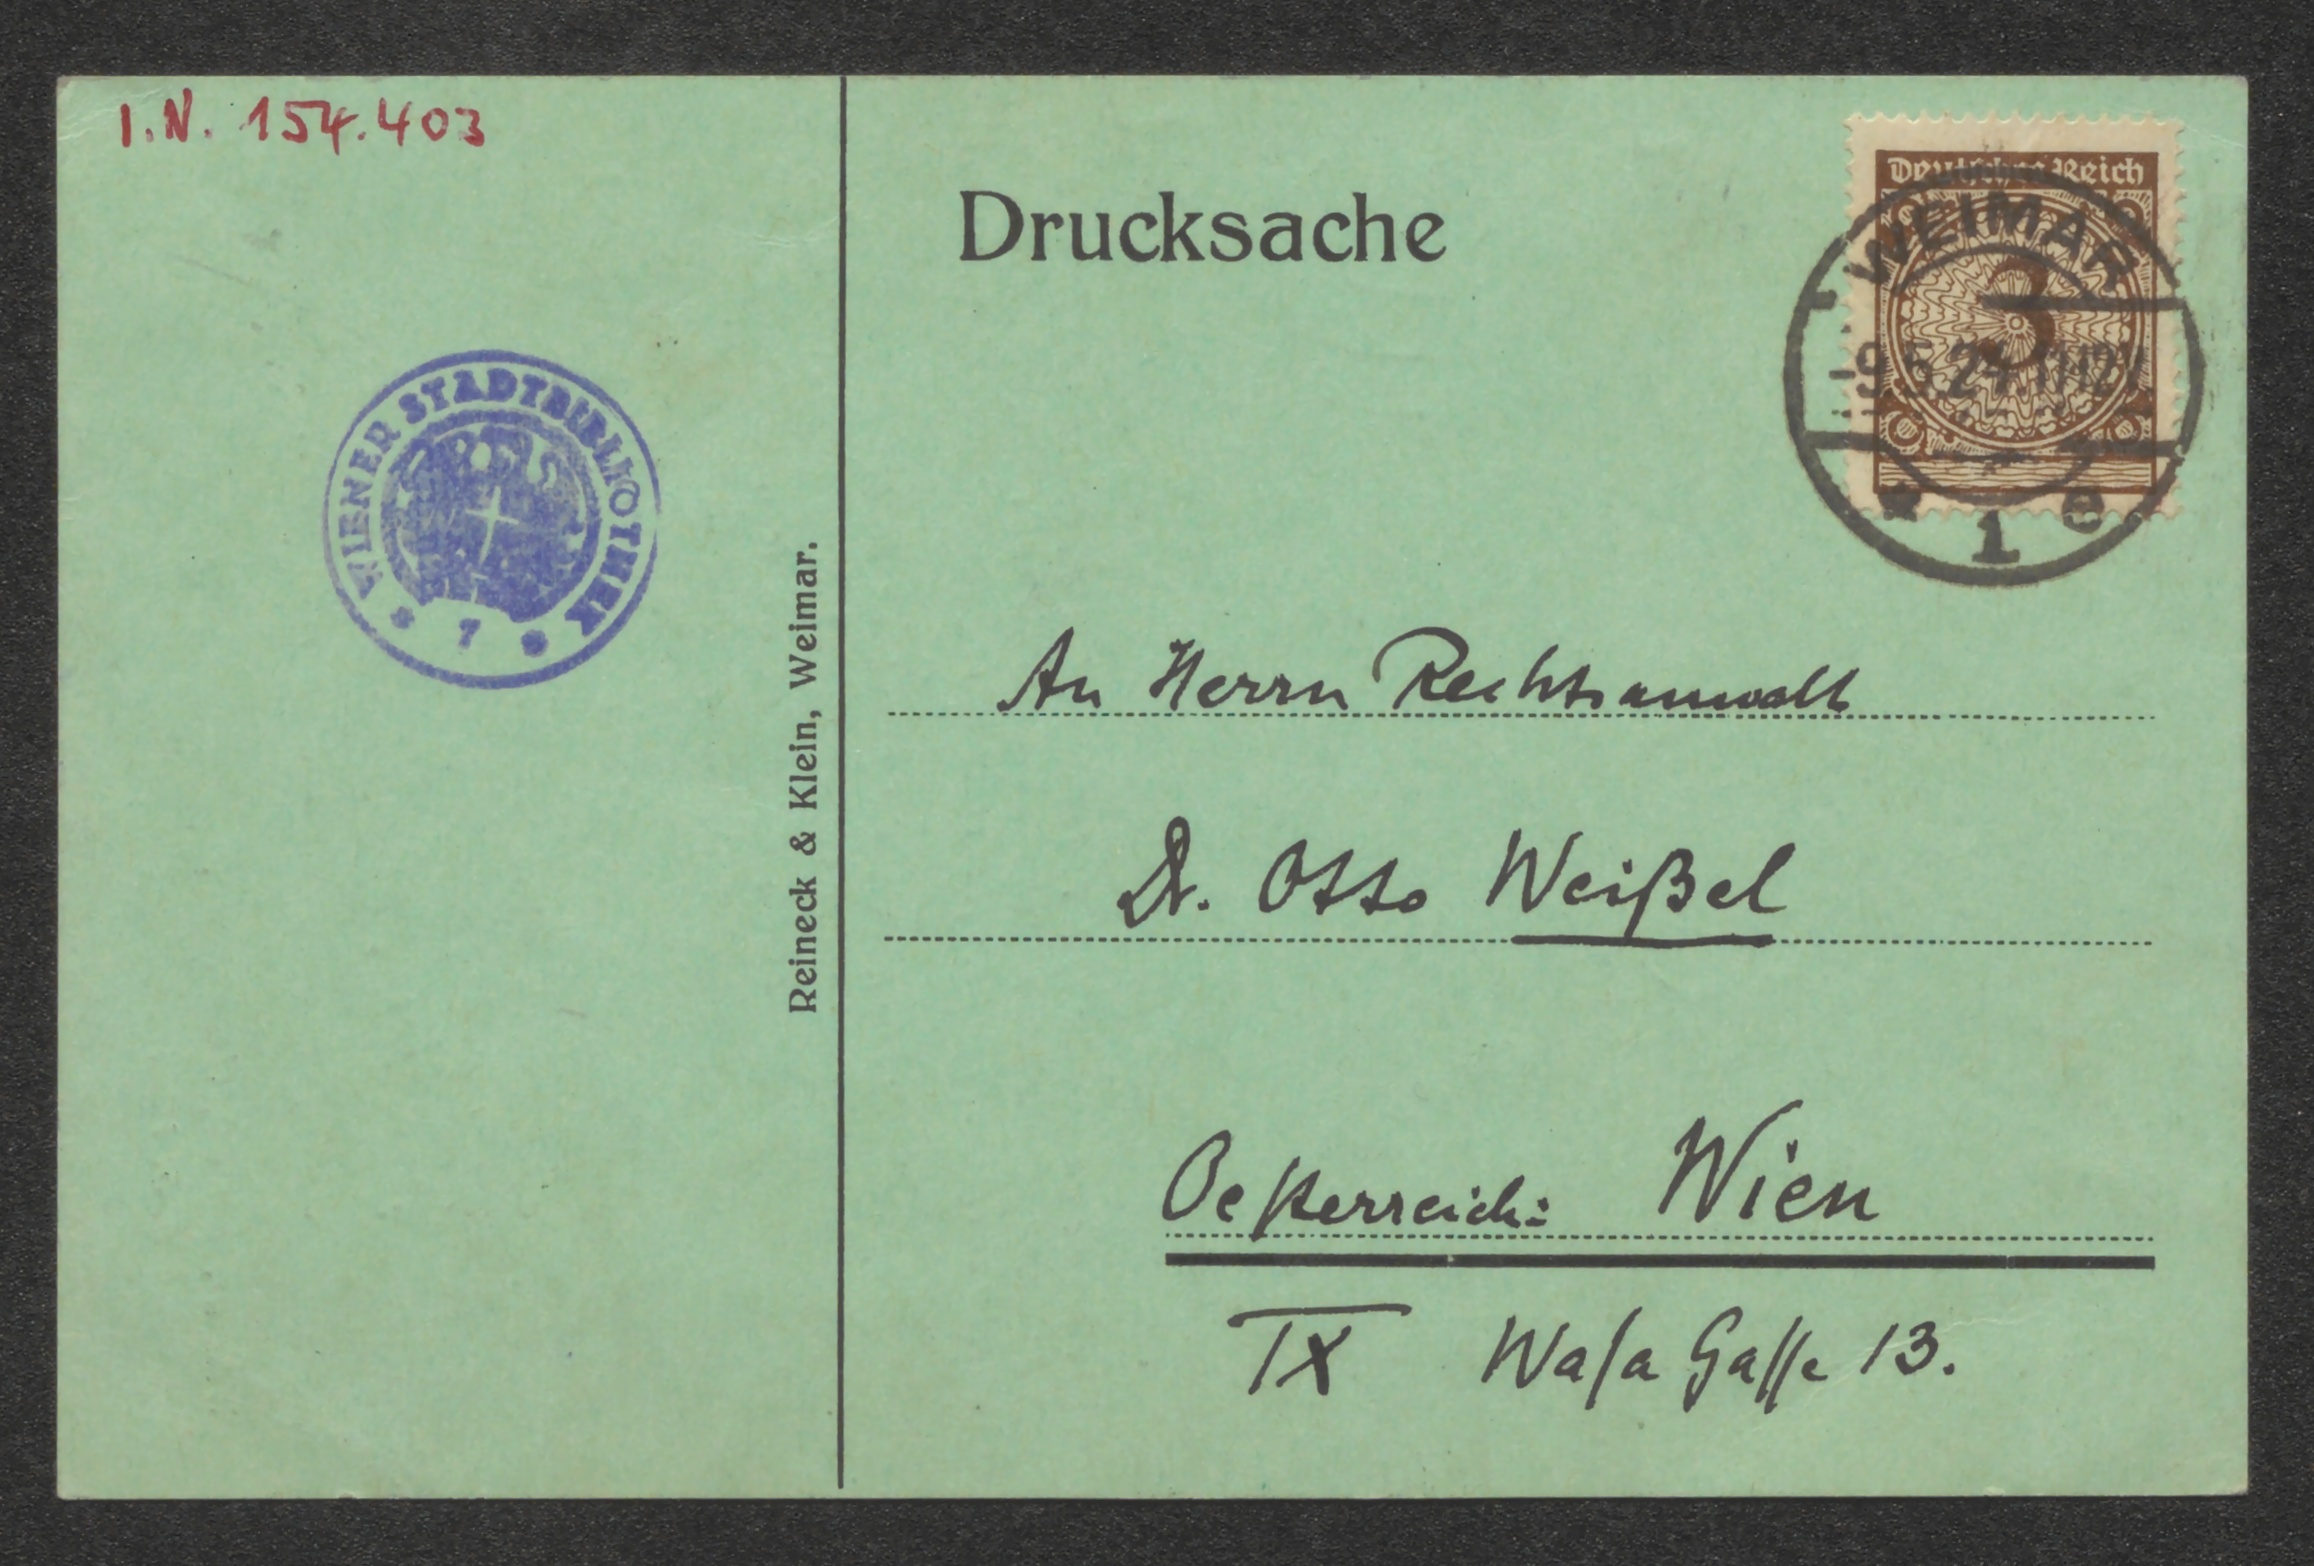 I.N. 154.403
Drucksache
Deutsches Reich
3
WEIMAR
* 1 e
WIENER STADTBIBLIOTHEK
* 7 *
Reineck & Klein, Weimar.
An Herrn Rechtsanwalt
Dr. Otto Weißel
Oesterreich: Wien
IX Wasa Gasse 13.